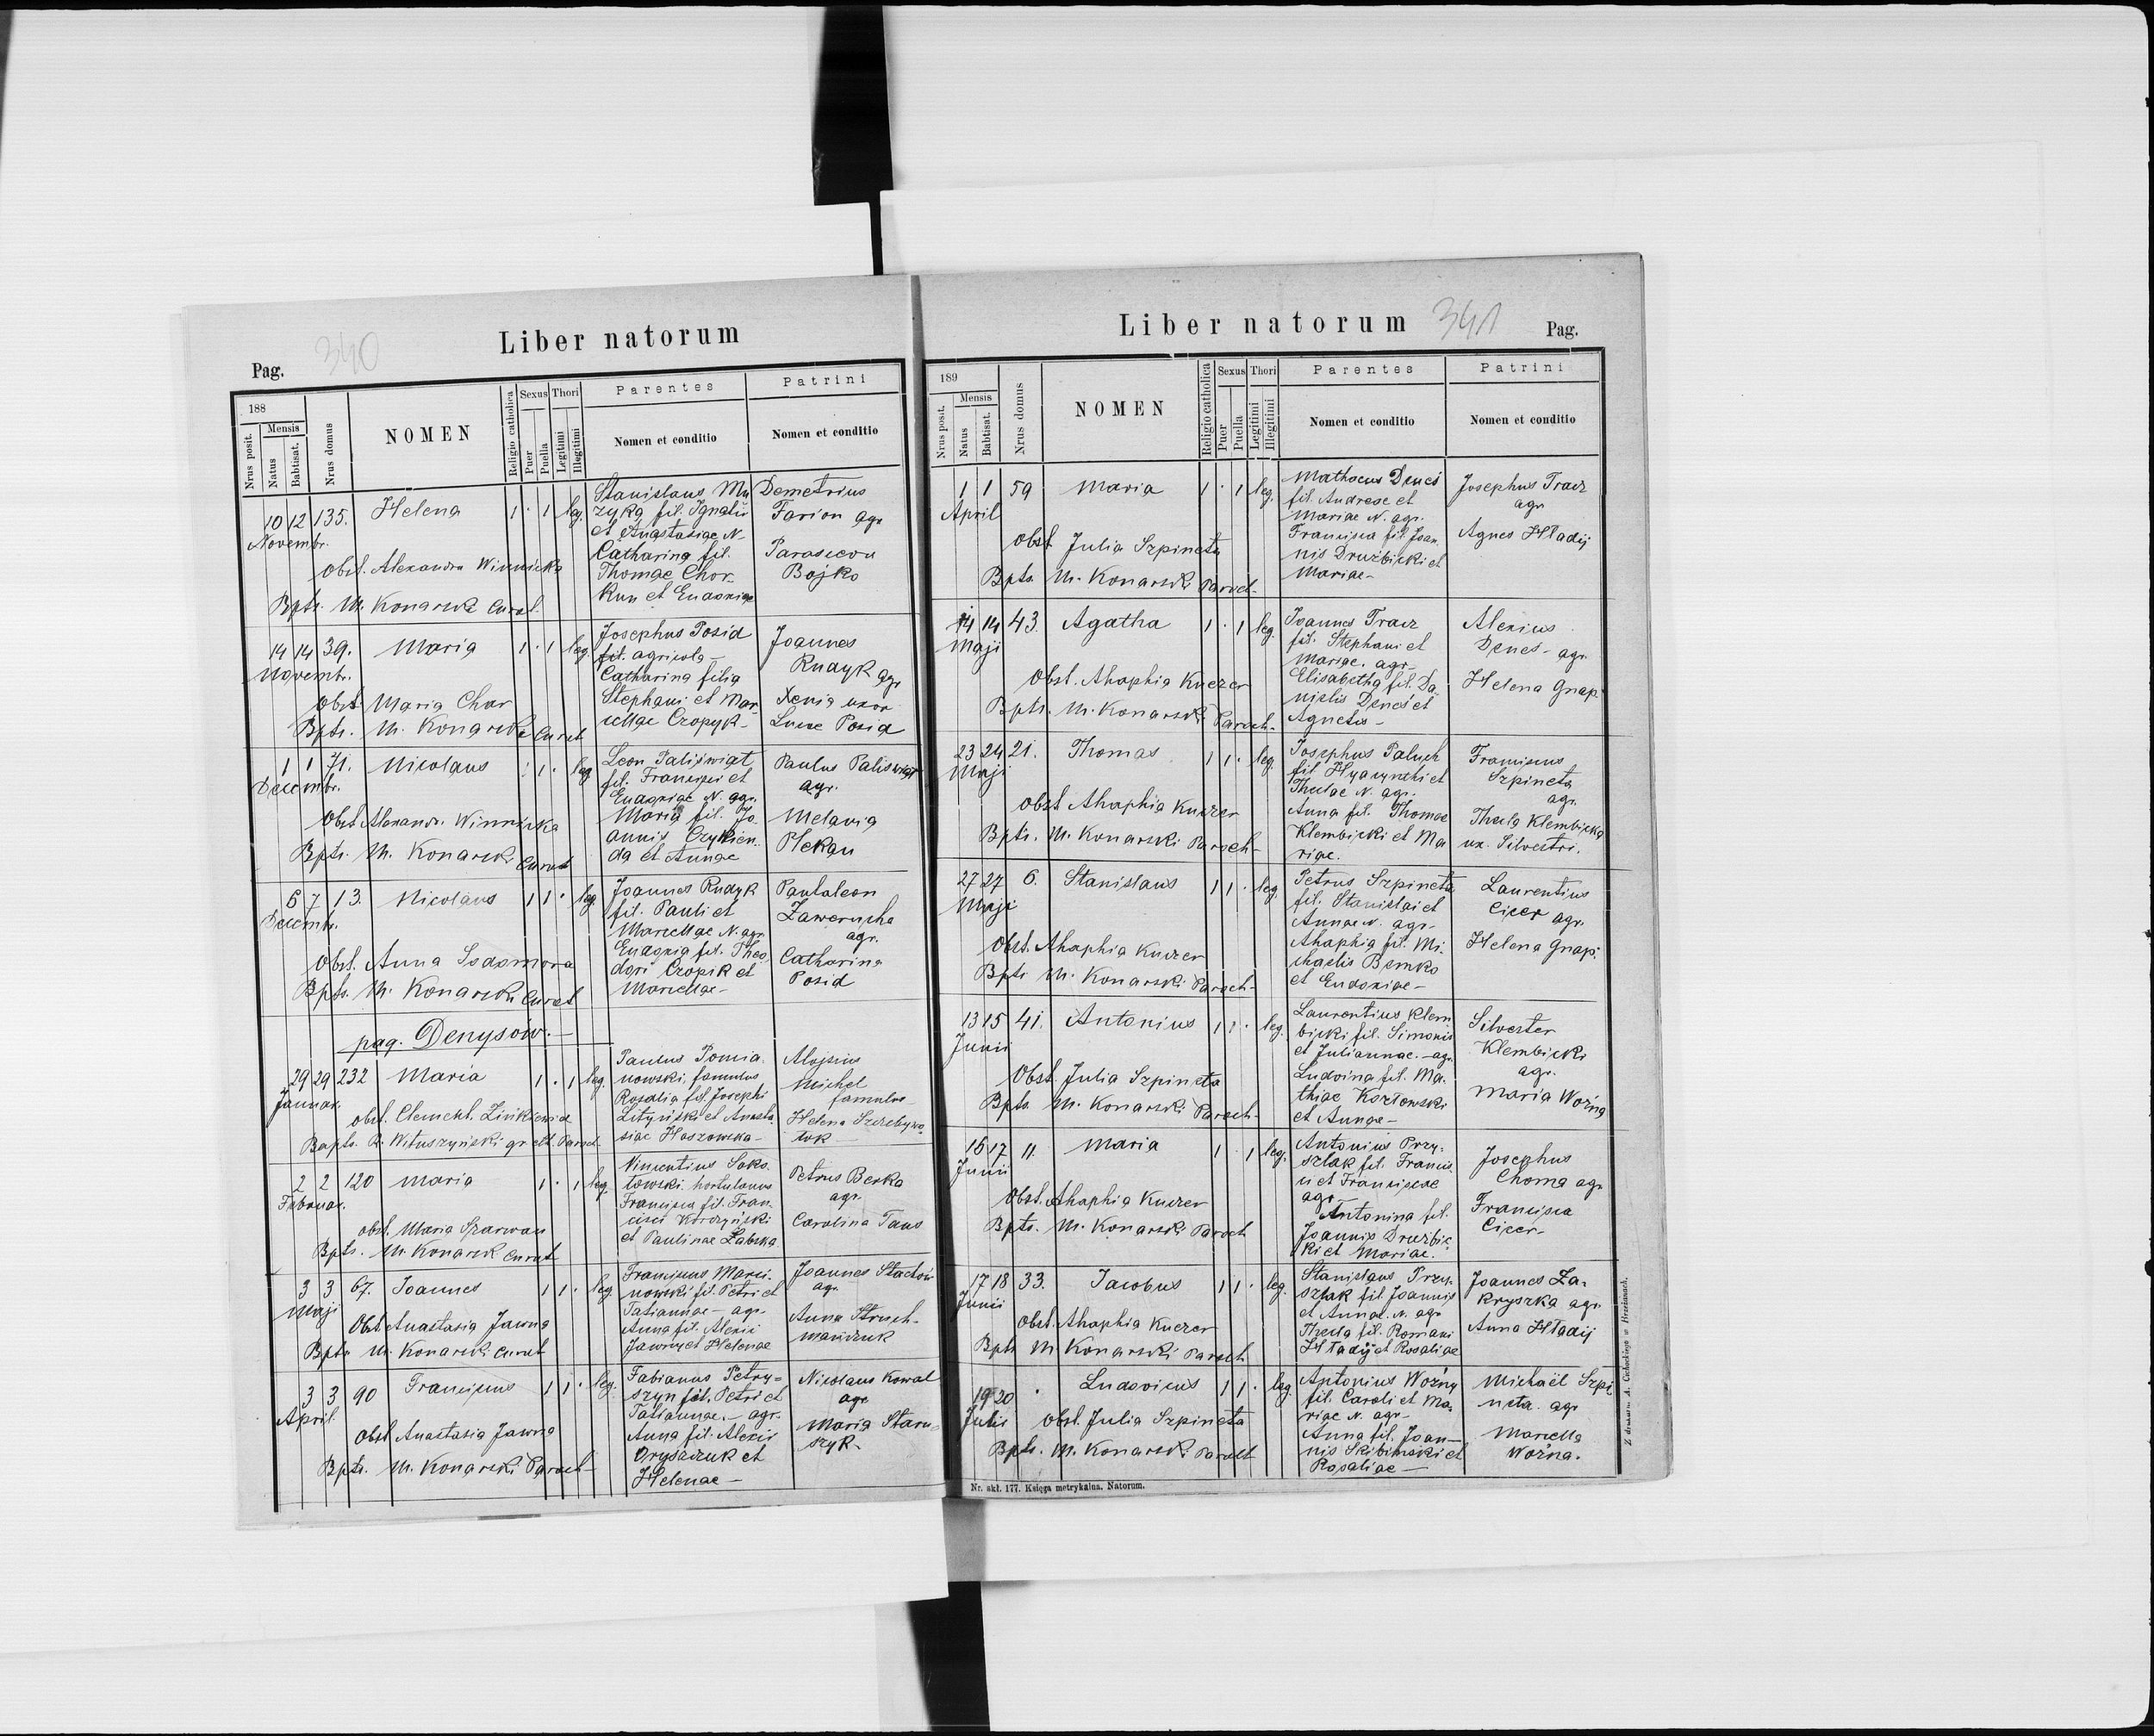 Pag. 340
Liber natorum
188
Nrus posit.
Mensis
Natus
Babtisat.
Nrus domus
NOMEN
Religio catholica
Sexus
Puer
Puella
Thori
Legitimi
Illegitimi
Parentes
Nomen et conditio
Patrini
Nomen et conditio
10 12 135. Helena 1 · 1 leg.
Novembr.
Obst. Alexandra Winnicka
Bpts. M. Konarski Curat.
Stanislaus Mu
zyka fil. Ignatii
et Anastasiae N
Catharina fil.
Thomae Chor-
kun et Eudoxiae
Demetrius
Farion agr
Parasceva
Bojko
14 14 39. Maria 1 · 1 leg.
Novembr.
Obst. Maria Chor
Bpts. M. Konarski Curat
Josephus Posid
fil. agricola -
Catharina filia
Stephani et Mar
cellae Cropyk -
Joannes
Rudyk agr
Xenia uxor
Lucae Posid
1 1 71. Nicolaus 1 1 · leg
Decembr.
Obst. Alexandr. Winnicka
Bpts. M. Konarski Curat
Leon Paliświat
fil. Francisci et
Eudoxiae N. agr.
Maria fil. Jo-
annis Czykien
da et Annae
Paulus Paliswiat
agr.
Melania
Plekan
6 7 13. Nicolaus 1 1 · leg.
Decembr.
Obst. Anna Sodomora
Bpts. M. Konarski Curat
Joannes Rudyk
fil. Pauli et
Marcellae N. agr.
Eudoxia fil. Theo
dori Cropik et
Marcellae -
Pantaleon
Zawerucha
agr.
Catharina
Posid
pag. Denysów. -
29 29 232 Maria 1 · 1 leg.
Januar.
obst. Clement.
Bapts. R. Wituszyński gr. ctt. Paroch.
Paulus Pomia-
nowski, famulus
Rosalia fil. Josephi
Lityński et Anasta-
siae Haszowska -
Alojsius
Michel
famulus -
Helena Szczebywo-
tok
2 2 120 Maria 1 · 1 leg.
Februar.
obst. Maria Szarwan
Bpts. M. Konarsk Curat
Vincentius Soko-
towski hortulanus
Francisca fil. Fran-
cisci Korczyński
et Paulinae Łabska
Petrus Berka
agr.
Carolina Taus
3 3 67. Joannes 1 1 · leg
Maji
Obst. Anastasia Jawna
Bpts M. Konarski Curat
Franciscus Marci-
nowski fil. Petri et
Tatiannae - agr.
Anna fil. Alexii
Jawny et Helenae
Joannes Stachów
agr.
Anna Struch-
mańczuk
3 3 90 Franciscus 1 1 · leg.
April.
Obst Anastasia Jawna
Bpts. M. Konarski Paroch -
Fabianus Petry-
szyn fil. Petri et
Tatiannae. - agr.
Anna fil. Alexii
Oryszczuk et
Helenae -
Nicolaus Kowal
agr
Maria Staru-
szyk -
Liber natorum 341 Pag.
189
Nrus posit.
Mensis
Natus
Babtisat.
Nrus domus
NOMEN
Religio catholica
Sexus
Puer
Puella
Thori
Legitimi
Illegitimi
Parentes
Nomen et conditio
Patrini
Nomen et conditio
1 1 59 Maria 1 · 1 leg.
April
Obst Julia Szpineta
Bpts. M. Konarski Paroch -
Mathaeus Deneś
fil. Andreae et
Mariae N. agr.
Francisca fil. Joan
nis Drużbicki et
Mariae -
Josephus Tracz
agr
Agnes Hładij
14 14 43. Agatha 1 · 1 leg.
Maji
Obst. Ahaphia Kuczer
Bpts. M. Konarski Paroch -
Joannes Tracz
fil. Stephani et
Mariae. agr -
Elisabetha fil. Da-
nielis Deneś et
Agnetis -
Alexius
Denes - agr.
Helena Gnap.
23 24 21. Thomas 1 1 · leg.
Maji
Obst. Ahaphia Kuczer
Bpts. M. Konarski Paroch -
Josephus Paluch
fil Hyacynthi et
Theclae N. agr.
Anna fil. Thomae
Klembicki et Ma
riae.
Franciscus
Szpineta
agr.
Thecla Klembicka
ux. Silvestri.
27 27 6. Stanislaus 1 1 · leg
Maji
Obst. Ahaphia Kuczer
Bpts M. Konarski Paroch -
Petrus Szpineta
fil. Stanislai et
Annae N. agr -
Ahaphia fil. Mi-
chaelis Bemko
et Eudoxiae -
Laurentius
Cicer agr.
Helena Gnap.
13 15 41. Antonius 1 1 · leg.
Junii
Obst. Julia Szpineta
Bpts. M. Konarski Paroch -
Laurentius Klem
bicki fil. Simonis
et Juliannae. - agr.
Ludovina fil. Ma-
thiae Kozłowski
et Annae -
Silvester
Klembicki
agr.
Maria Woźna
16 17 11 Maria 1 · 1 leg.
Junii
Obst. Ahaphia Kuczer
Bpts. M. Konarski Paroch
Antonius Przy-
szlak fil. Francis
ci et Franciscae
agr -
Antonina fil.
Joannis Drużbic-
ki et Mariae.
Josephus
Choma agr
Francisca
Cicer -
17 18 33. Jacobus 1 1 · leg.
Junii
Obst. Ahaphia Kuczer
Bpts M Konarski Paroch
Stanislaus Przy-
szlak fil Joannis
et Annae. N. agr
Thecla fil. Romani
Hładij et Rosaliae
Joannes Za-
kryszka agr.
Anna Hładij
19 20 · Ludovicus 1 1 · leg.
Julii
obst. Julia Szpineta
Bpts. M. Konarski Paroch
Antonius Woźny
fil. Caroli et Ma-
riae N. agr -
Anna fil. Joan-
nis Skibinski et
Rosaliae -
Michaël Szpi
neta. agr
Marcella
Woźna.
Nr. akł. 177. Księga metrykalna. Natorum.